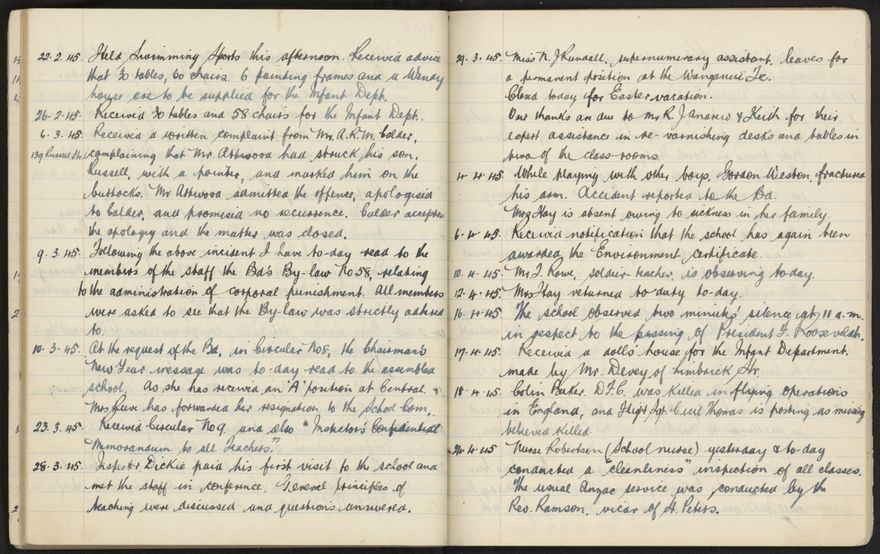 22.2.45. Held Swimming Sports this afternoon. Received advice
that 30 tables, 60 chairs, 6 painting frames and a Wendy
house are to be supplied for the Infant Dept.
26.2.45. Received 30 tables and 58 chairs for the Infant Dept.
6.3.45. Received a written complaint from Mr. A.K.M. Calder,
139 Russell St. complaining that Mr. Attwood had struck his son,
Russell, with a pointer, and marked him on the
buttocks. Mr Attwood admitted the offence, apologised
to Calder, and promised no recurrence. Calder accepted
the apology and the matter was closed.
9.3.45. Following the above incident I have to-day read to the
members of the staff the Bd's By-law No 58, relating
to the administration of corporal punishment. All members
were asked to see that the By-law was strictly adhered
to.
10.3.45. At the request of the Bd, in Circular No 8, the Chairman's
New Year message was to-day read to the assembled
school. As she has received an "A" position at Central
Mrs has forwarded her resignation to the School Com.
23.3.45. Received Circular No 9 and also "Inspectors' Confidential
Memorandum to all Teachers."
28.3.45. Inspector Dickie paid his first visit to the school and
met the staff in conference. General principles of
teaching were discussed and questions answered.
29.3.45. Miss N. J. Rundall, supernumerary assistant, leaves for
a permanent position at the Wanganui Tc.
Closed today for Easter vacation.
Our thanks are due to Mr K. & Keith for their
expert assistance in re-varnishing desks and tables in
two of the class-rooms.
4.4.45. While playing with other boys, Gordon Weston, fractured
his arm. Accident reported to the Bd.
Mrs Hay is absent owing to sickness in her family.
6.4.45. Received notification that the school has again been
awarded the Environment certificate.
10.4.45. Mr. J. Rowe, soldier teacher, is observing to-day.
12.4.45. Mrs Hay returned to duty to-day.
16.4.45 The school observed two minutes' silence at 11 a.m.
in respect to the passing of President F. Roosevelt.
17.4.45. Received a doll's house for the Infant Department
made by Mr. Devey of Limbrick St.
18.4.45 Colin Baker D.F.C. was killed in flying operations
in England, and Flight Sgt. Cecil Thomas is posting as missing
believed killed.
24.4.45 Nurse Robertson (School nurse) yesterday & to-day
conducted a "cleanliness" inspection of all classes.
The usual Anzac service was conducted by the
Rev. Ramson, vicar of St. Peters.